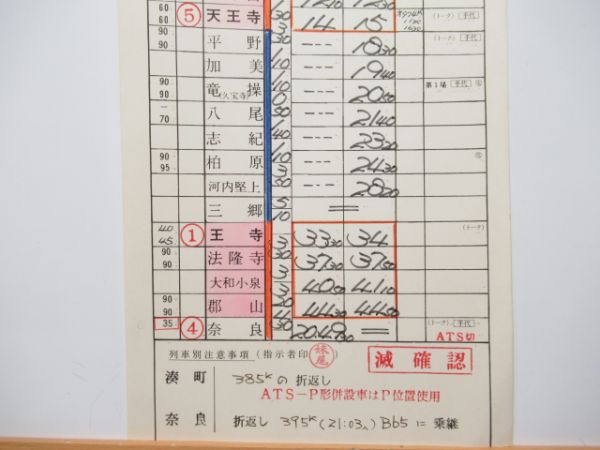 60
60 ⑤ 天王寺 30 3 14 15 (トーク) [手代]
90 平野 --- 18 30 (トーク) [手代]
加美 10 --- 19 40
90
90 竜操 (久宝寺) 10 0 --- 20 50 第1場 [手代]
－
70 八尾 50 --- 21 40
志紀 40 --- 23 20
90
95 柏原 10 3 --- 24 30
河内堅上 50 --- 28 20
三郷 5 10 ＝
40
45 ① 王寺 3 33 30 34 (トーク)
90
90 法隆寺 30 3 37 30 37 50
大和小泉 3 40 50 41 10
90
90 郡山 20 4 44 30 44 50
35 ④ 奈良 50 20.49 30 ＝ (トーク) [手代]
ATS切
列車別注意事項 (指示者印)
滅確認
湊町 385ᴷの折返し
ATS－P形併設車はP位置使用
奈良 折返し 395ᴷ(21:03入) Bb5 ニ 乗継